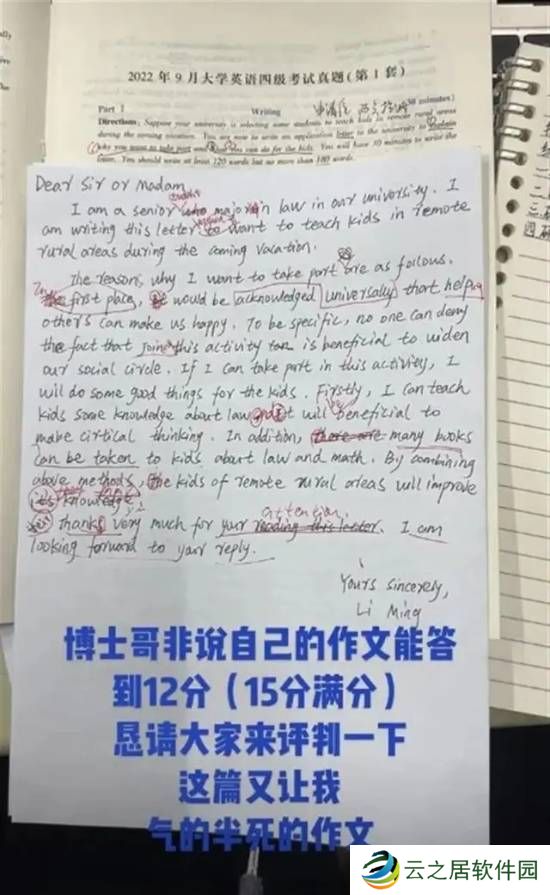 2022年9月大学英语四级考试真题(第1套)
Part I Writing (30 minutes)
Directions: Suppose your university is selecting some students to teach kids in remote rural areas
during the coming vacation. You are now to write an application letter to the university to explain
why you want to take part and what you can do for the kids. You will have 30 minutes to write the
letter. You should write at least 120 words but no more than 180 words.
Dear Sir or Madam
I am a senior who major in law in our university. I
am writing this letter to want to teach kids in remote
rural areas during the coming vacation.
The reasons why I want to take part are as follows.
first place, would be acknowledged universally that helping
others can make us happy. To be specific, no one can deny
the fact that join this activity is beneficial to widen
our social circle. If I can take part in this activity, I
will do some good things for the kids. Firstly, I can teach
kids some knowledge about law and it will beneficial to
make cirtical thinking. In addition, there are many books
can be taken to kids about law and math. By combining
above methods, the kids of remote rural areas will improve
its knowledge.
attention
thanks very much for your reading this letter. I am
looking forward to your reply.
Yours sincerely,
Li Ming
博士哥非说自己的作文能答
到12分(15分满分)
恳请大家来评判一下
这篇又让我
气的半死的作文
云之居软件园